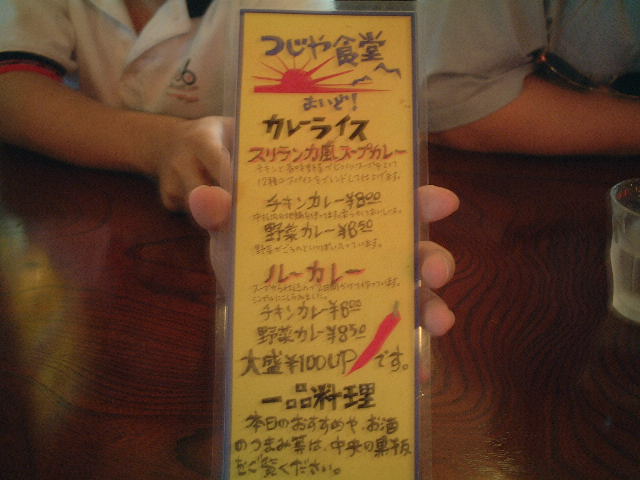 つじや食堂
まいど!
カレーライス
スリランカ風スープカレー
チキンカレー¥800
野菜カレー¥850
野菜がごろごろといっぱい入っています。
ルーカレー
チキンカレー¥800
野菜カレー¥850
大盛¥100UPです。
一品料理
本日のおすすめや、お酒
のつまみ等は、中央の黒板
をご覧ください。